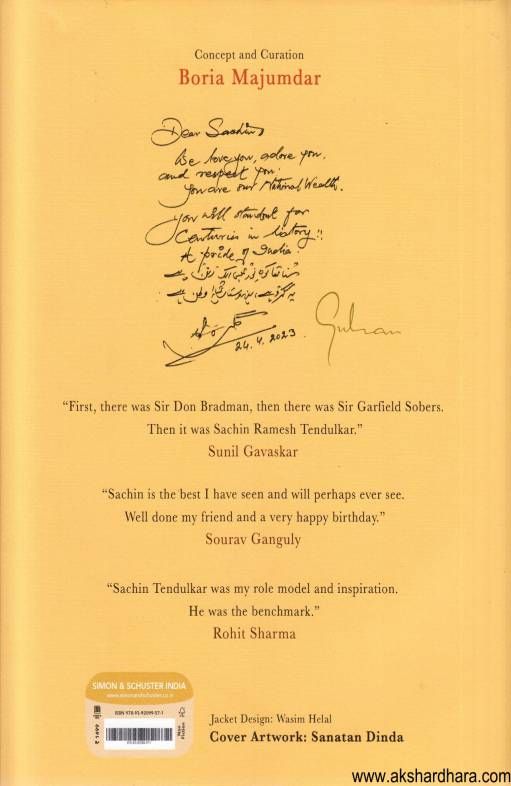 Concept and Curation
Boria Majumdar
Dear Sachin,
We love you, adore you,
and respect you.
You are our National Wealth.
You will standout for
Centuries in history!!
A pride of India.
24.4.2023
Gulzar
“First, there was Sir Don Bradman, then there was Sir Garfield Sobers.
Then it was Sachin Ramesh Tendulkar.”
Sunil Gavaskar
“Sachin is the best I have seen and will perhaps ever see.
Well done my friend and a very happy birthday.”
Sourav Ganguly
“Sachin Tendulkar was my role model and inspiration.
He was the benchmark.”
Rohit Sharma
SIMON & SCHUSTER INDIA
www.simonandschuster.co.in
ISBN 978-93-92099-57-1
₹ 1499
Non
Fiction
Jacket Design: Wasim Helal
Cover Artwork: Sanatan Dinda
www.akshardhara.com